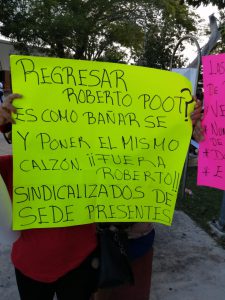 REGRESAR
ROBERTO POOT?
ES COMO BAÑARSE
Y PONER EL MISMO
CALZÓN. ¡¡FUERA
ROBERTO!!
SINDICALIZADOS DE
SEDE PRESENTES
LOS